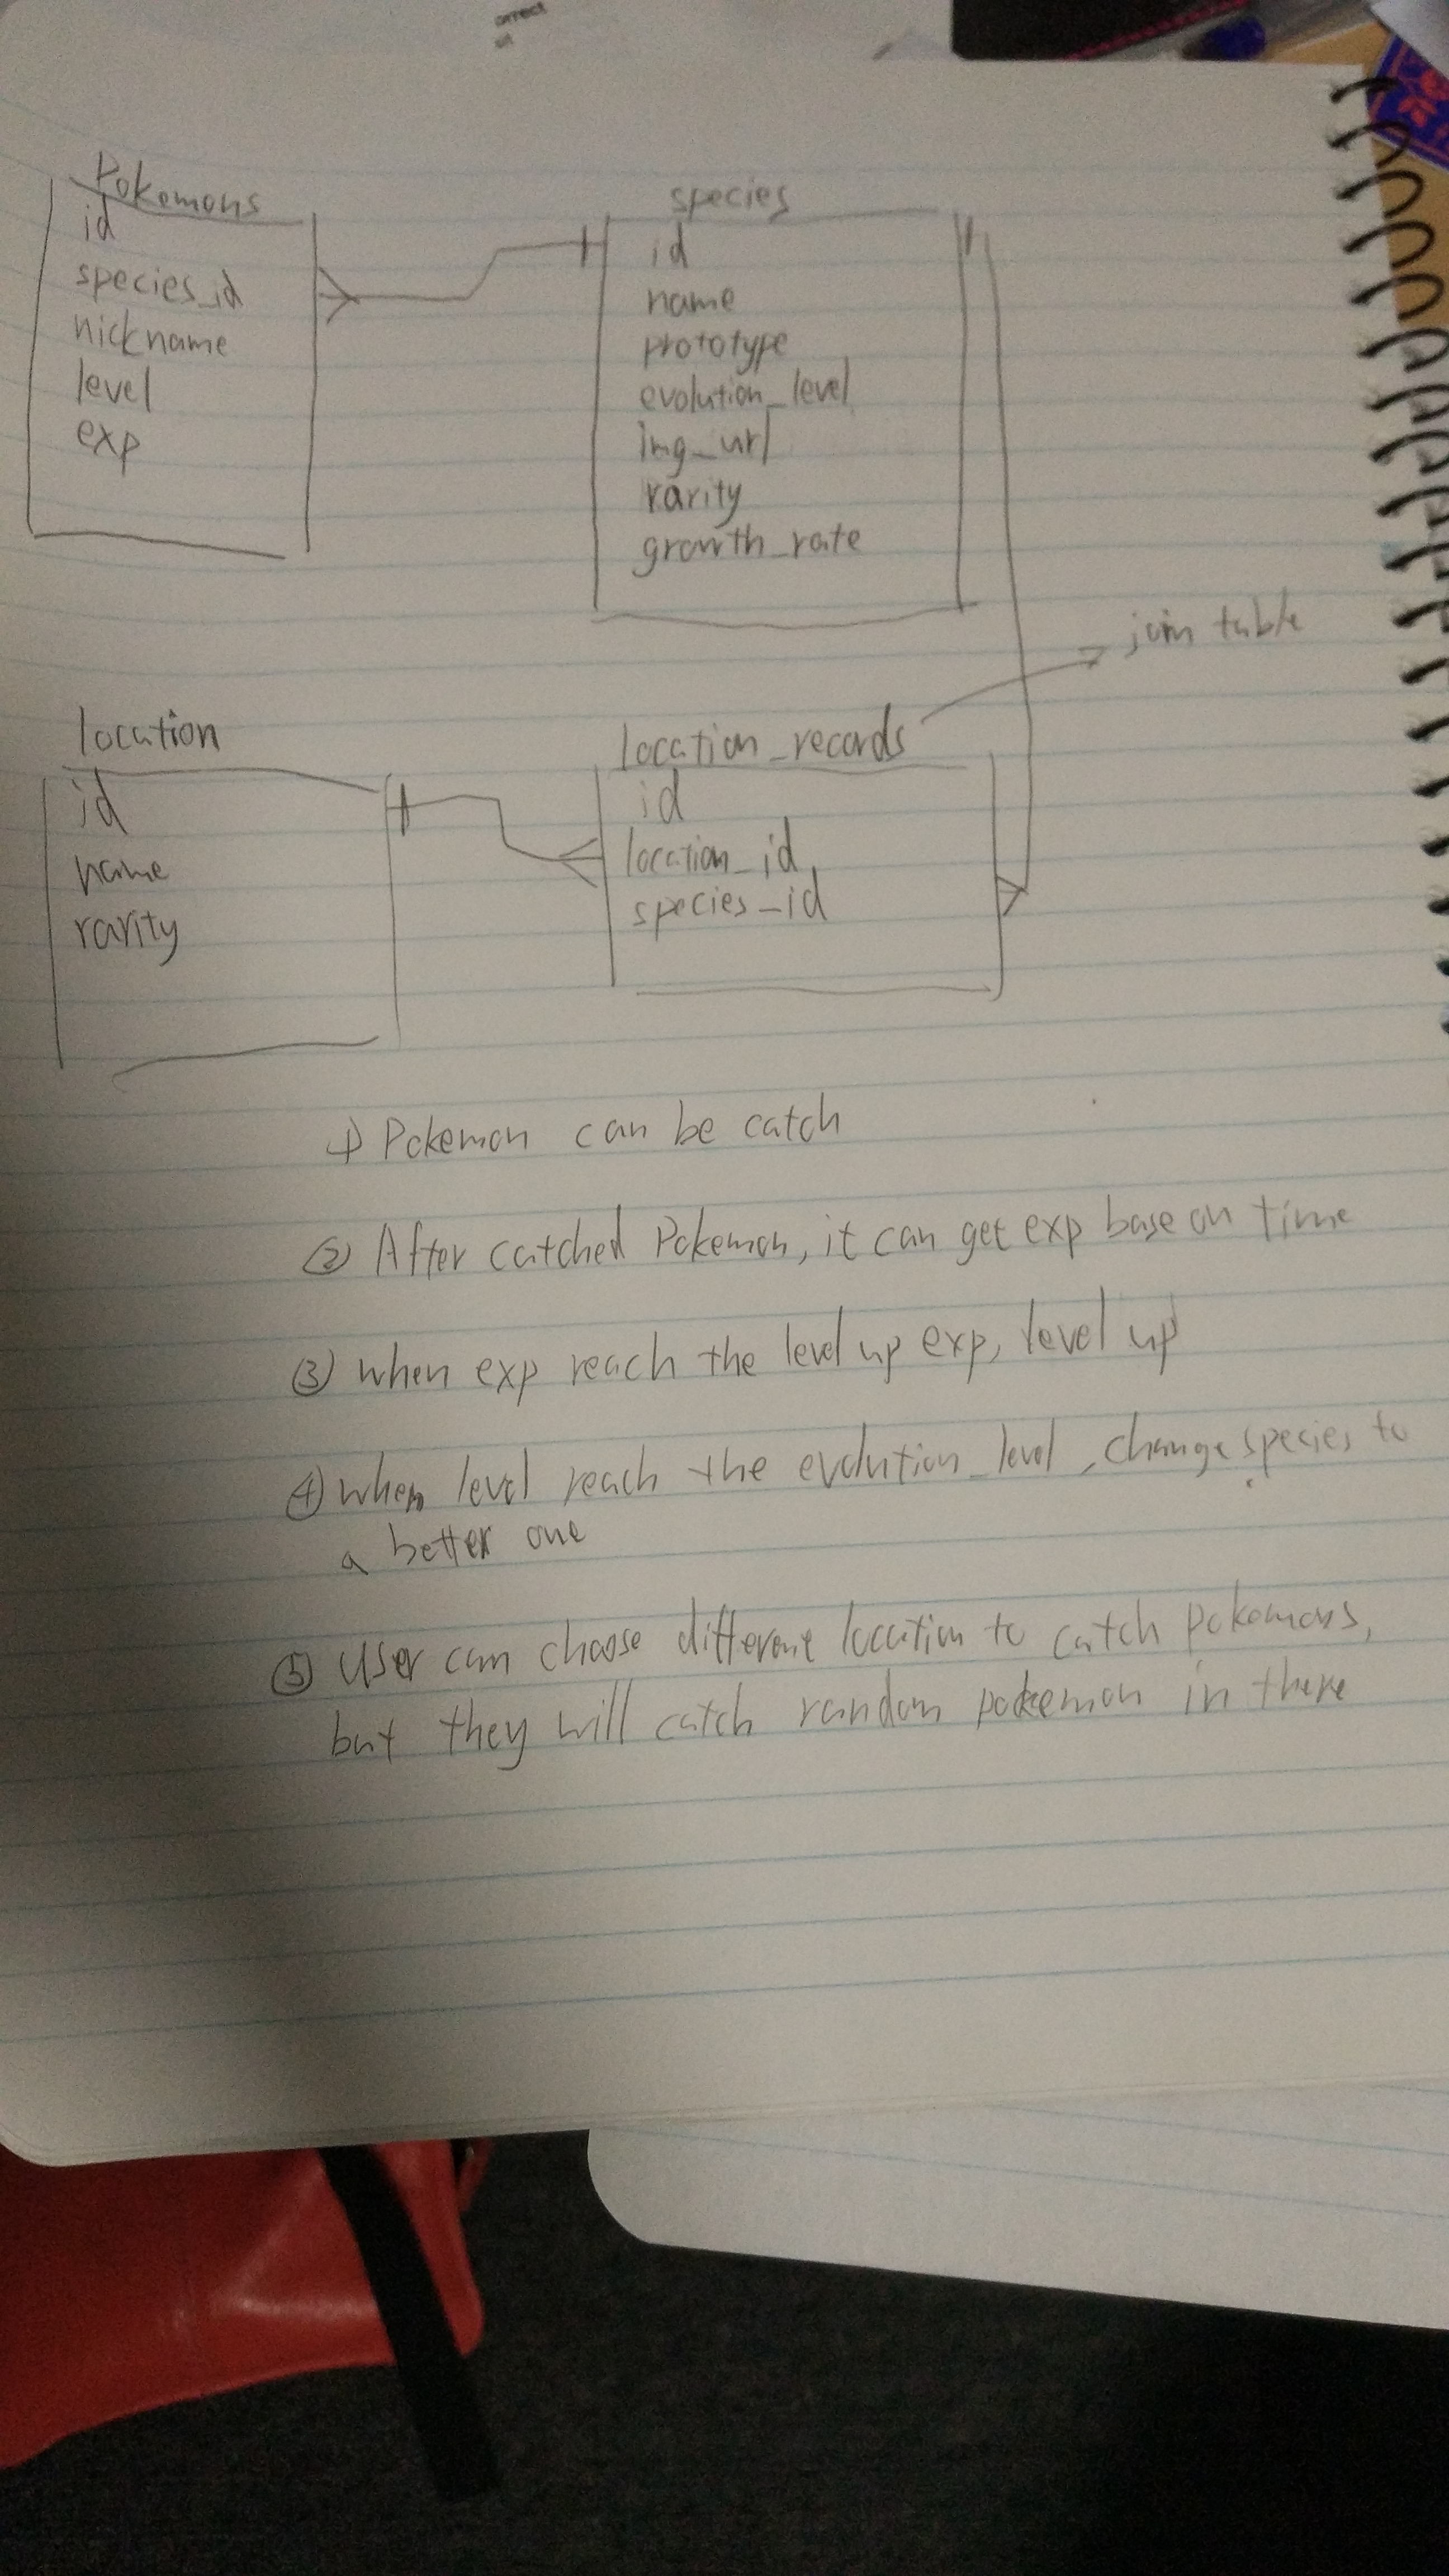 Pokemons
id
species_id
nickname
level
exp
species
id
name
prototype
evolution_level
img_url
rarity
growth_rate
join table
location
id
name
rarity
location_records
id
location_id
species_id
① Pokemon can be catch
② After catched Pokemon, it can get exp base on time
③ when exp reach the level up exp, level up
④ when level reach the evolution_level, change species to
a better one
⑤ User can choose different location to catch pokemons,
but they will catch random pokemon in there